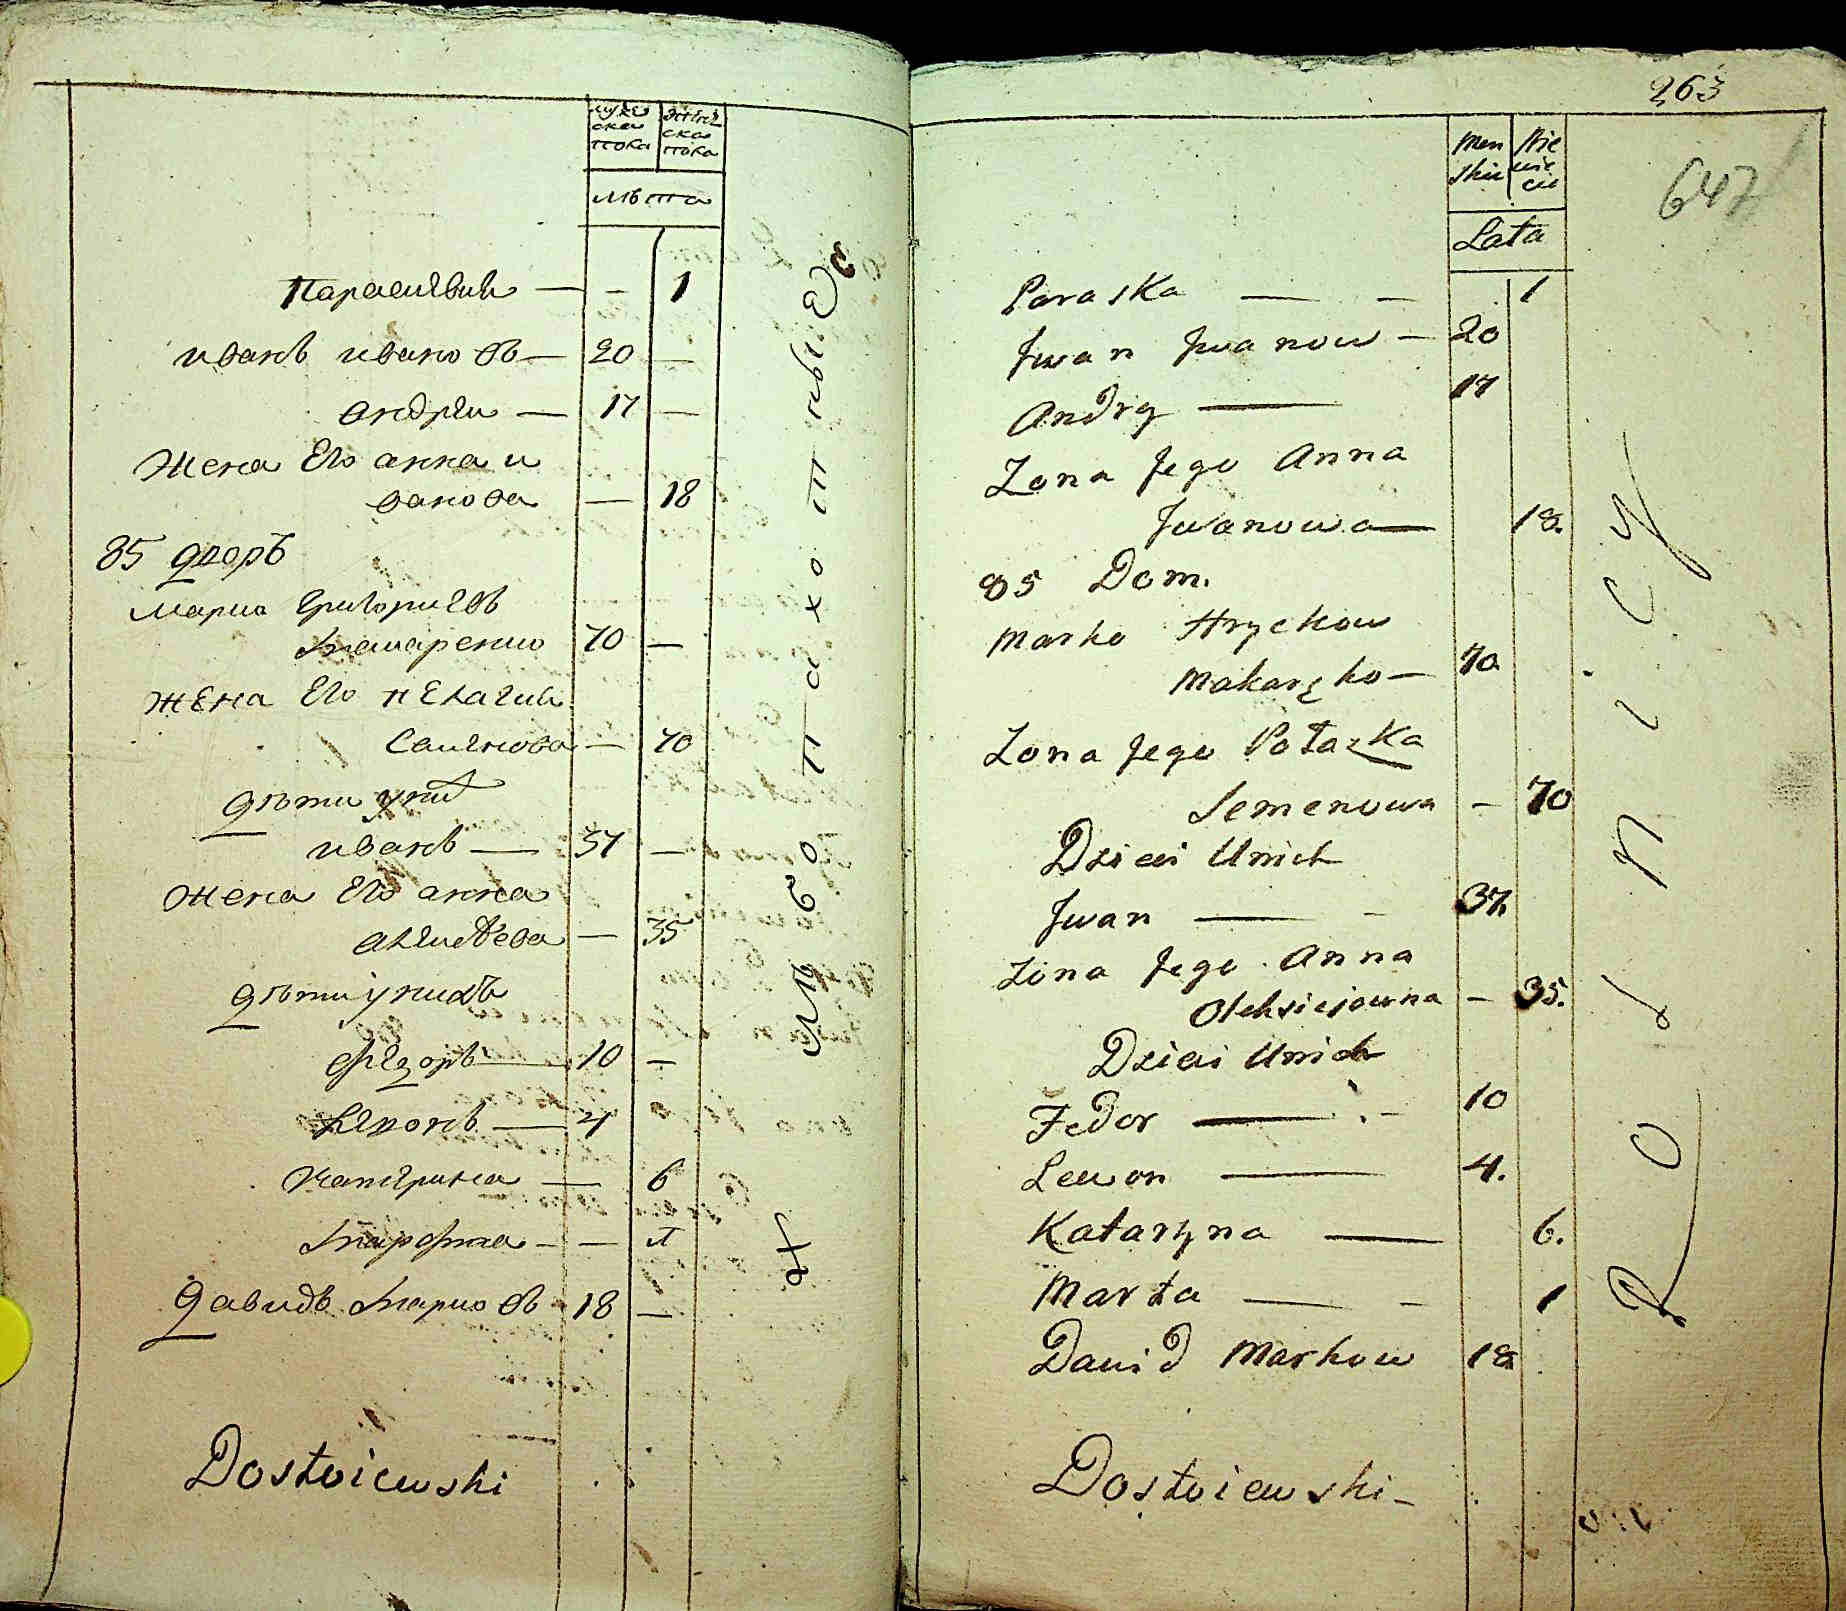 мужеска пола
женска пола
лѣта
Параскивия — — 1
иванъ ивановъ — 20 —
андрей — 17 —
жена Его анна и
ванова — 18
85 дворъ
марко григориевъ
макаренко 70 —
жена Его пелагия
Самѣнова — 70
дѣти у них
иванъ — 37 —
жена Его анна
алексѣева — 35
дѣти у нихъ
Федоръ — 10 —
Левонъ — 4
катерина — 6
марфта — — 1
давидъ марковъ 18 —
Dostoiewski
хлѣбопахотныйе
263
647
Men skie
Nie wie cie
Lata
Paraska — — 1
Jwan Jwanow — 20
Andry — 17
Zona Jego Anna
Jwanowa — 18.
85 Dom.
Marko Hryckow
Makaręko — 70
Zona Jego Połazka
Semenowa — 70
Dzieci Unich
Jwan — — 37.
Zona Jego Anna
Oleksiejowna — 35.
Dzieci Unich
Fedor — — 10
Lewon — 4.
Katarzyna — 6.
Marta — — 1
Dawid Markow 18
Dostoiewski —
Rolnicy